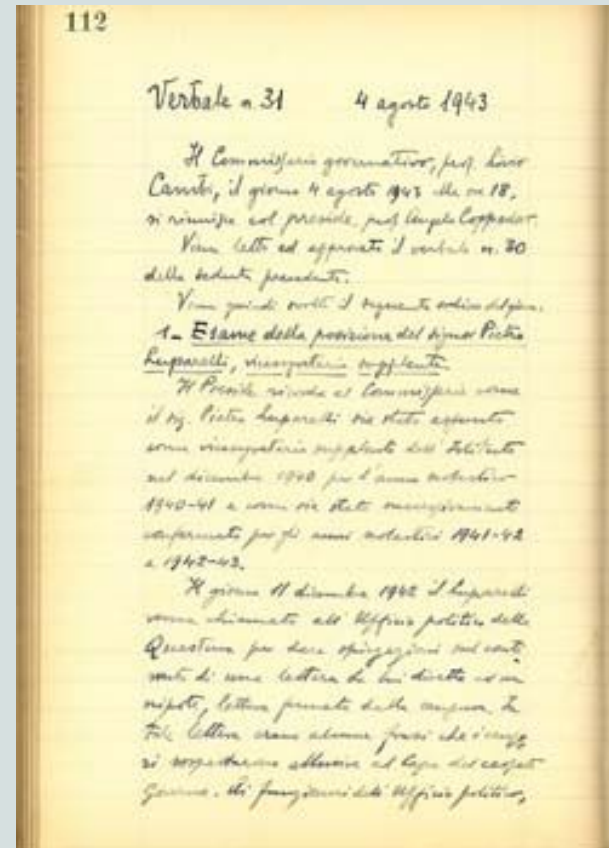 112
Verbale n. 31 4 agosto 1943
Il Commissario governativo, prof. Livio
Cambi, il giorno 4 agosto 1943 alle ore 18,
si riunisce col preside, prof. Angelo Coppadoro.
Viene letto ed approvato il verbale n. 30
della seduta precedente.
Viene quindi svolto il seguente ordine del giorno.
1- Esame della posizione del signor Pietro
Luparelli, vicesegretario supplente.
Il Preside ricorda al Commissario come
il sig. Pietro Luparelli sia stato assunto
come vicesegretario supplente dell'Istituto
nel dicembre 1940 per l'anno scolastico
1940-41 e come sia stato successivamente
confermato per gli anni scolastici 1941-42
e 1942-43.
Il giorno 11 dicembre 1942 il Luparelli
venne chiamato all'Ufficio politico della
Questura per dare spiegazioni sul conte
nuto di una lettera da lui diretta ad un
nipote, lettera fermata dalla censura. In
tale lettera erano alcune frasi che i
si sospettarono allusive al Capo del cessato
Governo. Ai funzionari dell'Ufficio politico,